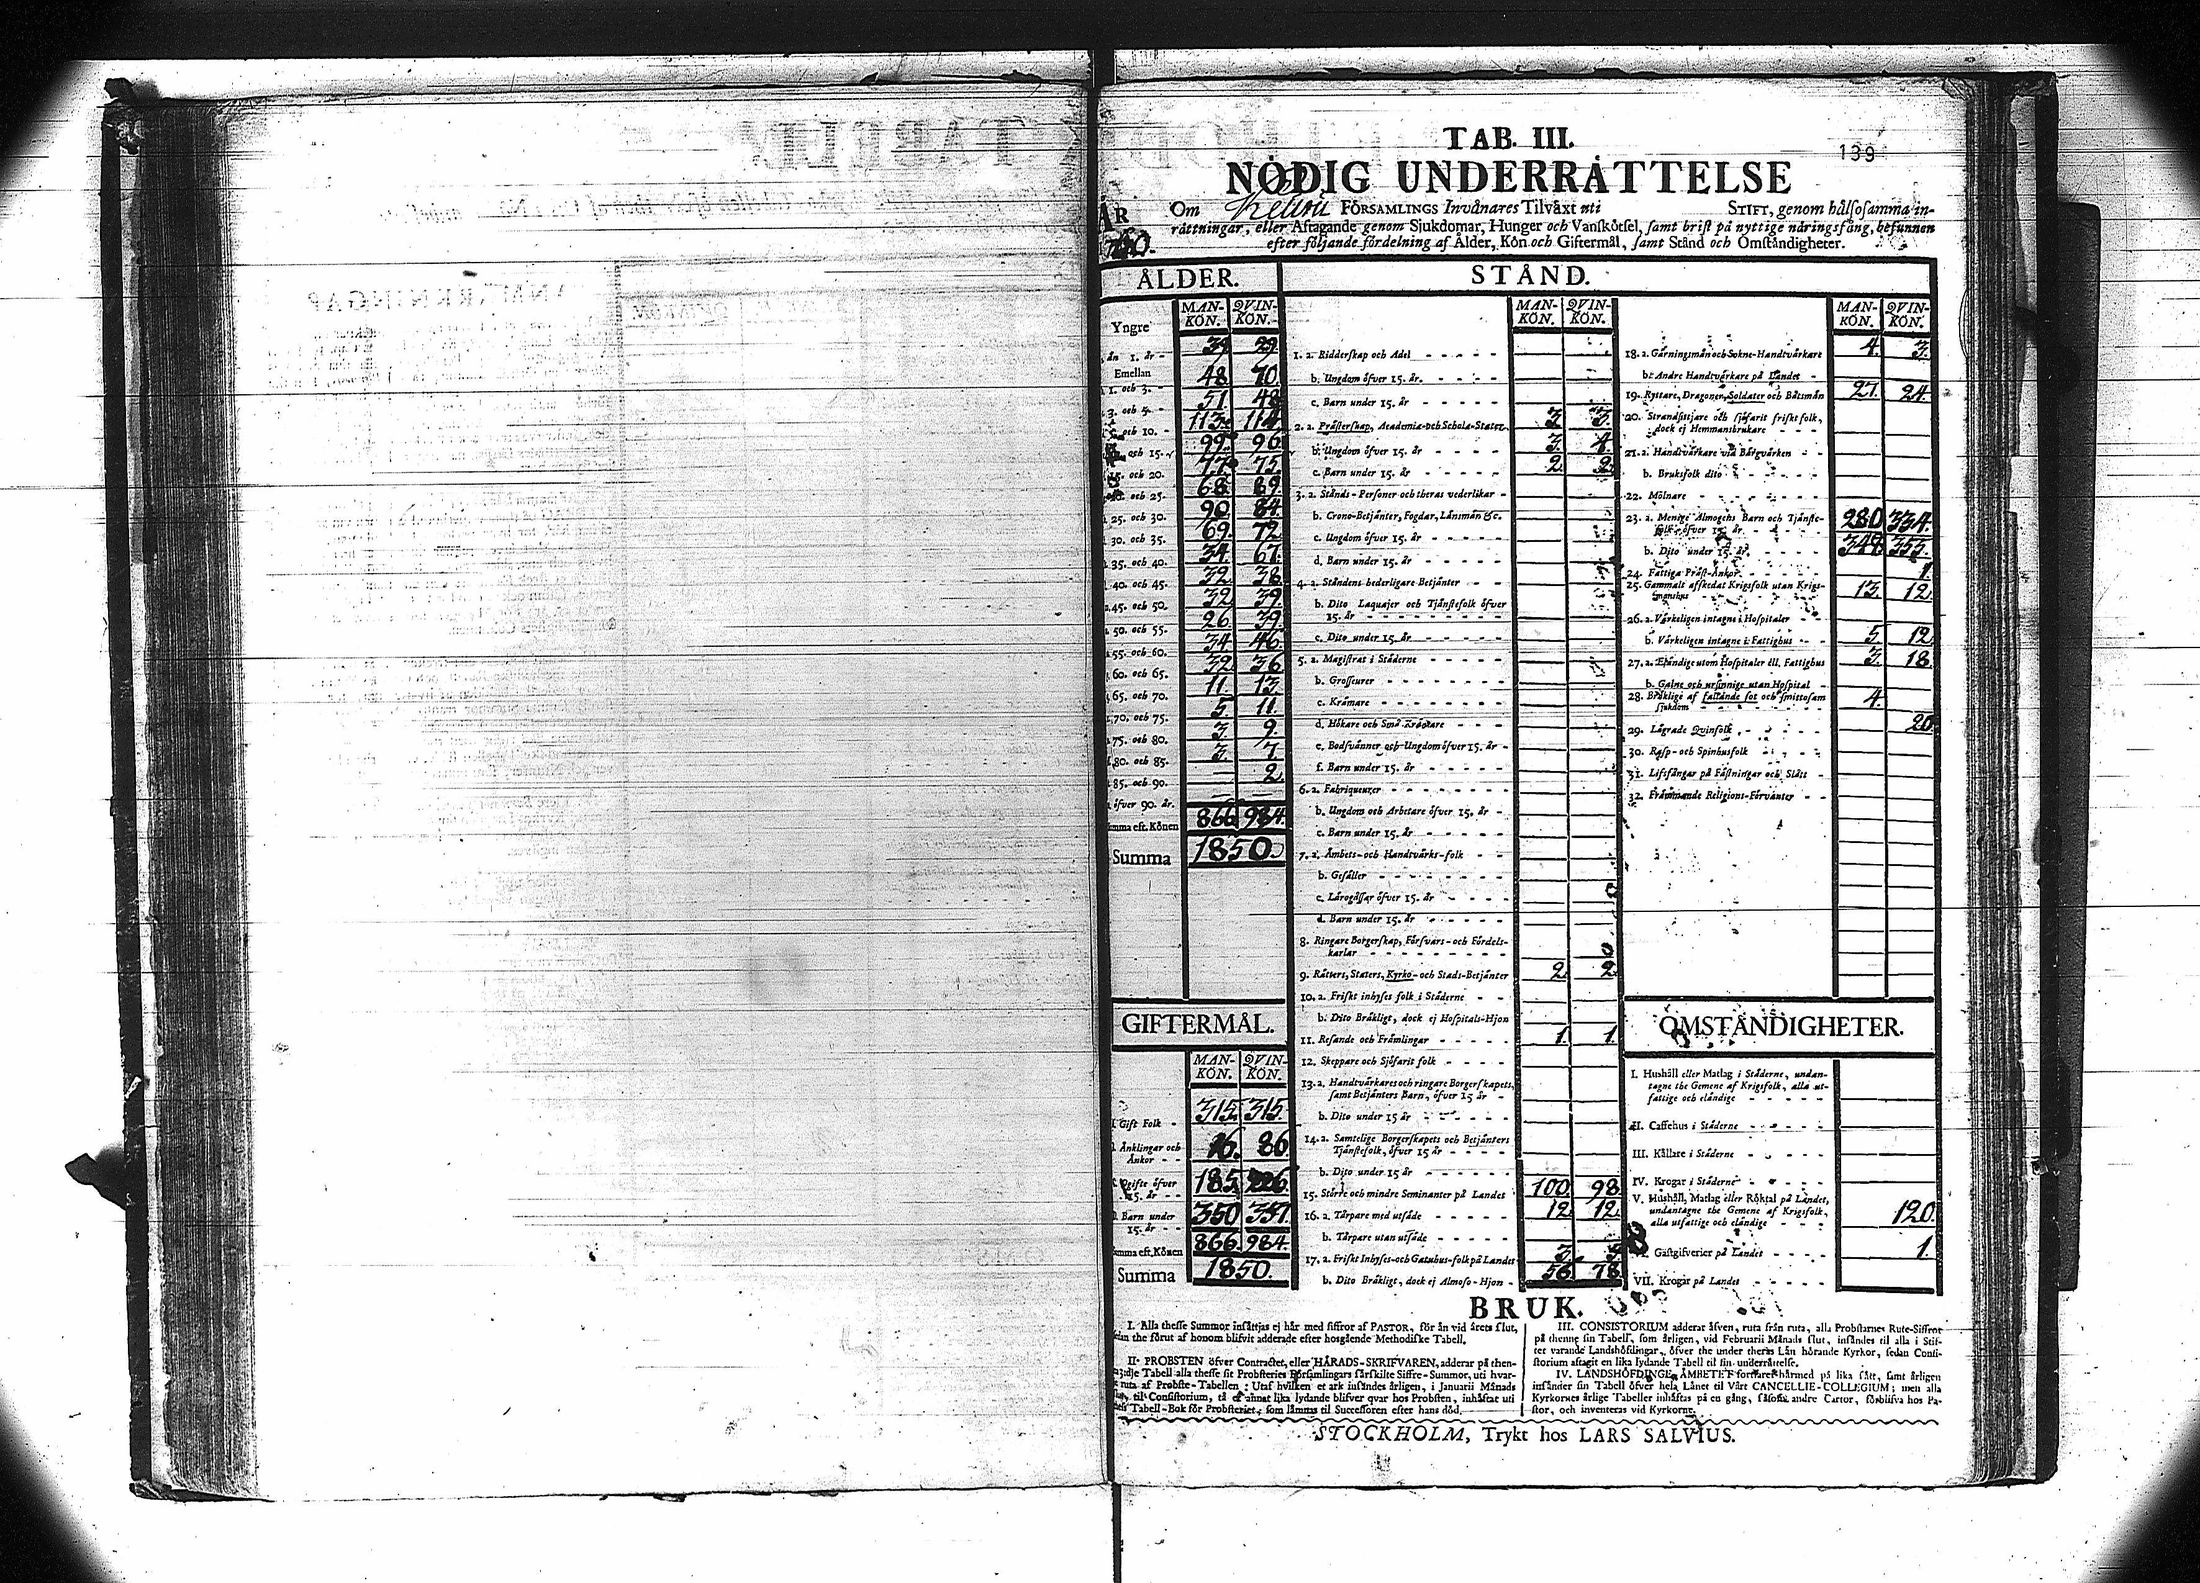 139
TAB. III.
NÖDIG UNDERRÅTTELSE
ÅR
Om FÖRSAMLINGS Invånares Tilväxt uti STIFT, genom hälsosamma in-
rättningar, eller Aftagande genom Sjukdomar, Hunger och Vanskötsel, samt brist på nyttige näringsfång, befunnen
efter följande fördelning af Ålder, Kön och Giftermål, samt Stånd och Omständigheter.
ÅLDER.
MAN-KÖN. QVIN-KÖN.
Yngre
än 1. år 39. 29.
Emellan
1. och 3. 48. 70.
3. och 5. 51. 48.
och 10. 113. 114.
och 15. 99. 96.
och 20. 77. 75.
och 25. 68. 89.
25. och 30. 90. 84.
30. och 35. 69. 72.
35. och 40. 34. 67.
40. och 45. 32. 38.
45. och 50. 32. 39.
50. och 55. 26. 39.
55. och 60. 34. 46.
60. och 65. 32. 36.
65. och 70. 11. 13.
70. och 75. 5. 11.
75. och 80. 3. 9.
80. och 85. 3. 7.
85. och 90. — 2.
öfver 90. år. — —
Summa eft. Könen 866. 984.
Summa 1850.
GIFTERMÅL.
MAN-KÖN. QVIN-KÖN.
Gift Folk 315. 315.
Änklingar och
Änkor 16. 86.
Ogifte öfver
15. år 185. 226.
Barn under
15. år 350. 357.
Summa eft. Könen 866. 984.
Summa 1850.
STÅND.
MAN-KÖN. QVIN-KÖN.
1. a. Ridderskap och Adel
b. Ungdom öfver 15. år.
c. Barn under 15. år
2. a. Prästerskap, Academiæ- och Schola-Stater 3. 3.
b. Ungdom öfver 15. år 3. 4.
c. Barn under 15. år 2. 2.
3. a. Stånds-Personer och theras vederlikar
b. Crono-Betjänter, Fogdar, Länsmän &c.
c. Ungdom öfver 15. år
d. Barn under 15. år
4. a. Ståndens hederligare Betjänter
b. Dito Laquajer och Tjänstefolk öfver
15. år
c. Dito under 15. år
5. a. Magistrat i Städerne
b. Grosseurer
c. Krämare
d. Hökare och Små Krämare
e. Bodsvänner och Ungdom öfver 15. år
f. Barn under 15. år
6. a. Fabriqueurer
b. Ungdom och Arbetare öfver 15. år
c. Barn under 15. år
7. a. Ämbets- och Handtvärks-folk
b. Gesäller
c. Lärogåssar öfver 15. år
d. Barn under 15. år
8. Ringare Borgerskap, Försvars- och Fördels-
karlar
9. Rätters, Staters, Kyrko- och Stads-Betjänter 2. 2.
10. a. Friskt inhyses folk i Städerne
b. Dito Bräkligt, dock ej Hospitals-Hjon
11. Resande och Främlingar 1. 1.
12. Skeppare och Sjöfarit folk
13. a. Handtvärkares och ringare Borgerskapets,
samt Betjänters Barn, öfver 15 år
b. Dito under 15 år
14. a. Samtelige Borgerskapets och Betjänters
Tjänstefolk, öfver 15 år
b. Dito under 15 år
15. Större och mindre Seminanter på Landet 100. 98.
16. a. Tårpare med utsäde 12. 12.
b. Tårpare utan utsäde
17. a. Friskt Inhyses- och Gatuhus-folk på Landet 3. 5.
b. Dito Bräkligt, dock ej Almoso-Hjon 56. 78.
MAN-KÖN. QVIN-KÖN.
18. a. Gärningsmän och Sokne-Handtvärkare 4. 3.
b. Andre Handtvärkare på Landet
19. Ryttare, Dragoner, Soldater och Båtsmän 27. 24.
20. Strandsittjare och sjöfarit friskt folk,
dock ej Hemmansbrukare
21. a. Handtvärkare vid Bärgvärken
b. Bruksfolk dito
22. Mölnare
23. a. Menige Almogens Barn och Tjänste-
folk, öfver 15. år 280. 334.
b. Dito under 15. år 348. 353.
24. Fattiga Präst-Änkor 1.
25. Gammalt affskedat Krigsfolk utan Krigs-
manshus 13. 12.
26. a. Värkeligen intagne i Hospitaler
b. Värkeligen intagne i Fattighus 5. 12.
27. a. Eländige utom Hospitaler ell. Fattighus 3. 18.
b. Galne och ursinnige utan Hospital
28. Bräklige af fallande sot och smittosam
sjukdom 4.
29. Lägrade Qvinfolk 20.
30. Rasp- och Spinhusfolk
31. Lifsfångar på Fästningar och Slått
32. Främmande Religions-Förvanter
OMSTÄNDIGHETER.
I. Hushåll eller Matlag i Städerne, undan-
tagne the Gemene af Krigsfolk, alla ut-
fattige och eländige
II. Caffehus i Städerne
III. Källare i Städerne
IV. Krogar i Städerne
V. Hushåll, Matlag eller Röktal på Landet,
undantagne the Gemene af Krigsfolk,
alla utfattige och eländige 120.
Gästgifverier på Landet 1.
VII. Krogar på Landet
BRUK.
I. Alla thesse Summor insättjas ej här med siffror af PASTOR, för än vid årets slut,
sedan the förut af honom blifvit adderade efter hosgående Methodiske Tabell.
II. PROBSTEN öfver Contractet, eller HÄRADS-SKRIFVAREN, adderar på then-
tredje Tabell alla thesse sit Probsteries Församlingars särskilte Siffre-Summor, uti hvar-
ruta af Probste-Tabellen; Utaf hvilken et ark insändes årligen, i Januarii Månads
slut, til Consistorium, tå et annat lika lydande blifver qvar hos Probsten, inhäftat uti
Tabell-Bok för Probsteriet, som lämnas til Successoren efter hans död.
III. CONSISTORIUM adderar äfven, ruta från ruta, alla Probstarnes Rute-Siffror
på thenne sin Tabell, som årligen, vid Februarii Månads slut, insändes til alla i Stif-
tet varande Landshöfdingar, öfver the under theras Län hörande Kyrkor, sedan Consi-
storium aftagit en lika lydande Tabell til sin underrättelse.
IV. LANDSHÖFDINGE ÄMBETET fortfare härmed på lika sätt, samt årligen
insänder sin Tabell öfver hela Länet til Vårt CANCELLIE-COLLEGIUM; men alla
Kyrkornes årlige Tabeller inhäftas på en gång, såsom andre Cartor, förblifva hos Pa-
stor, och inventeras vid Kyrkorne.
STOCKHOLM, Trykt hos LARS SALVIUS.